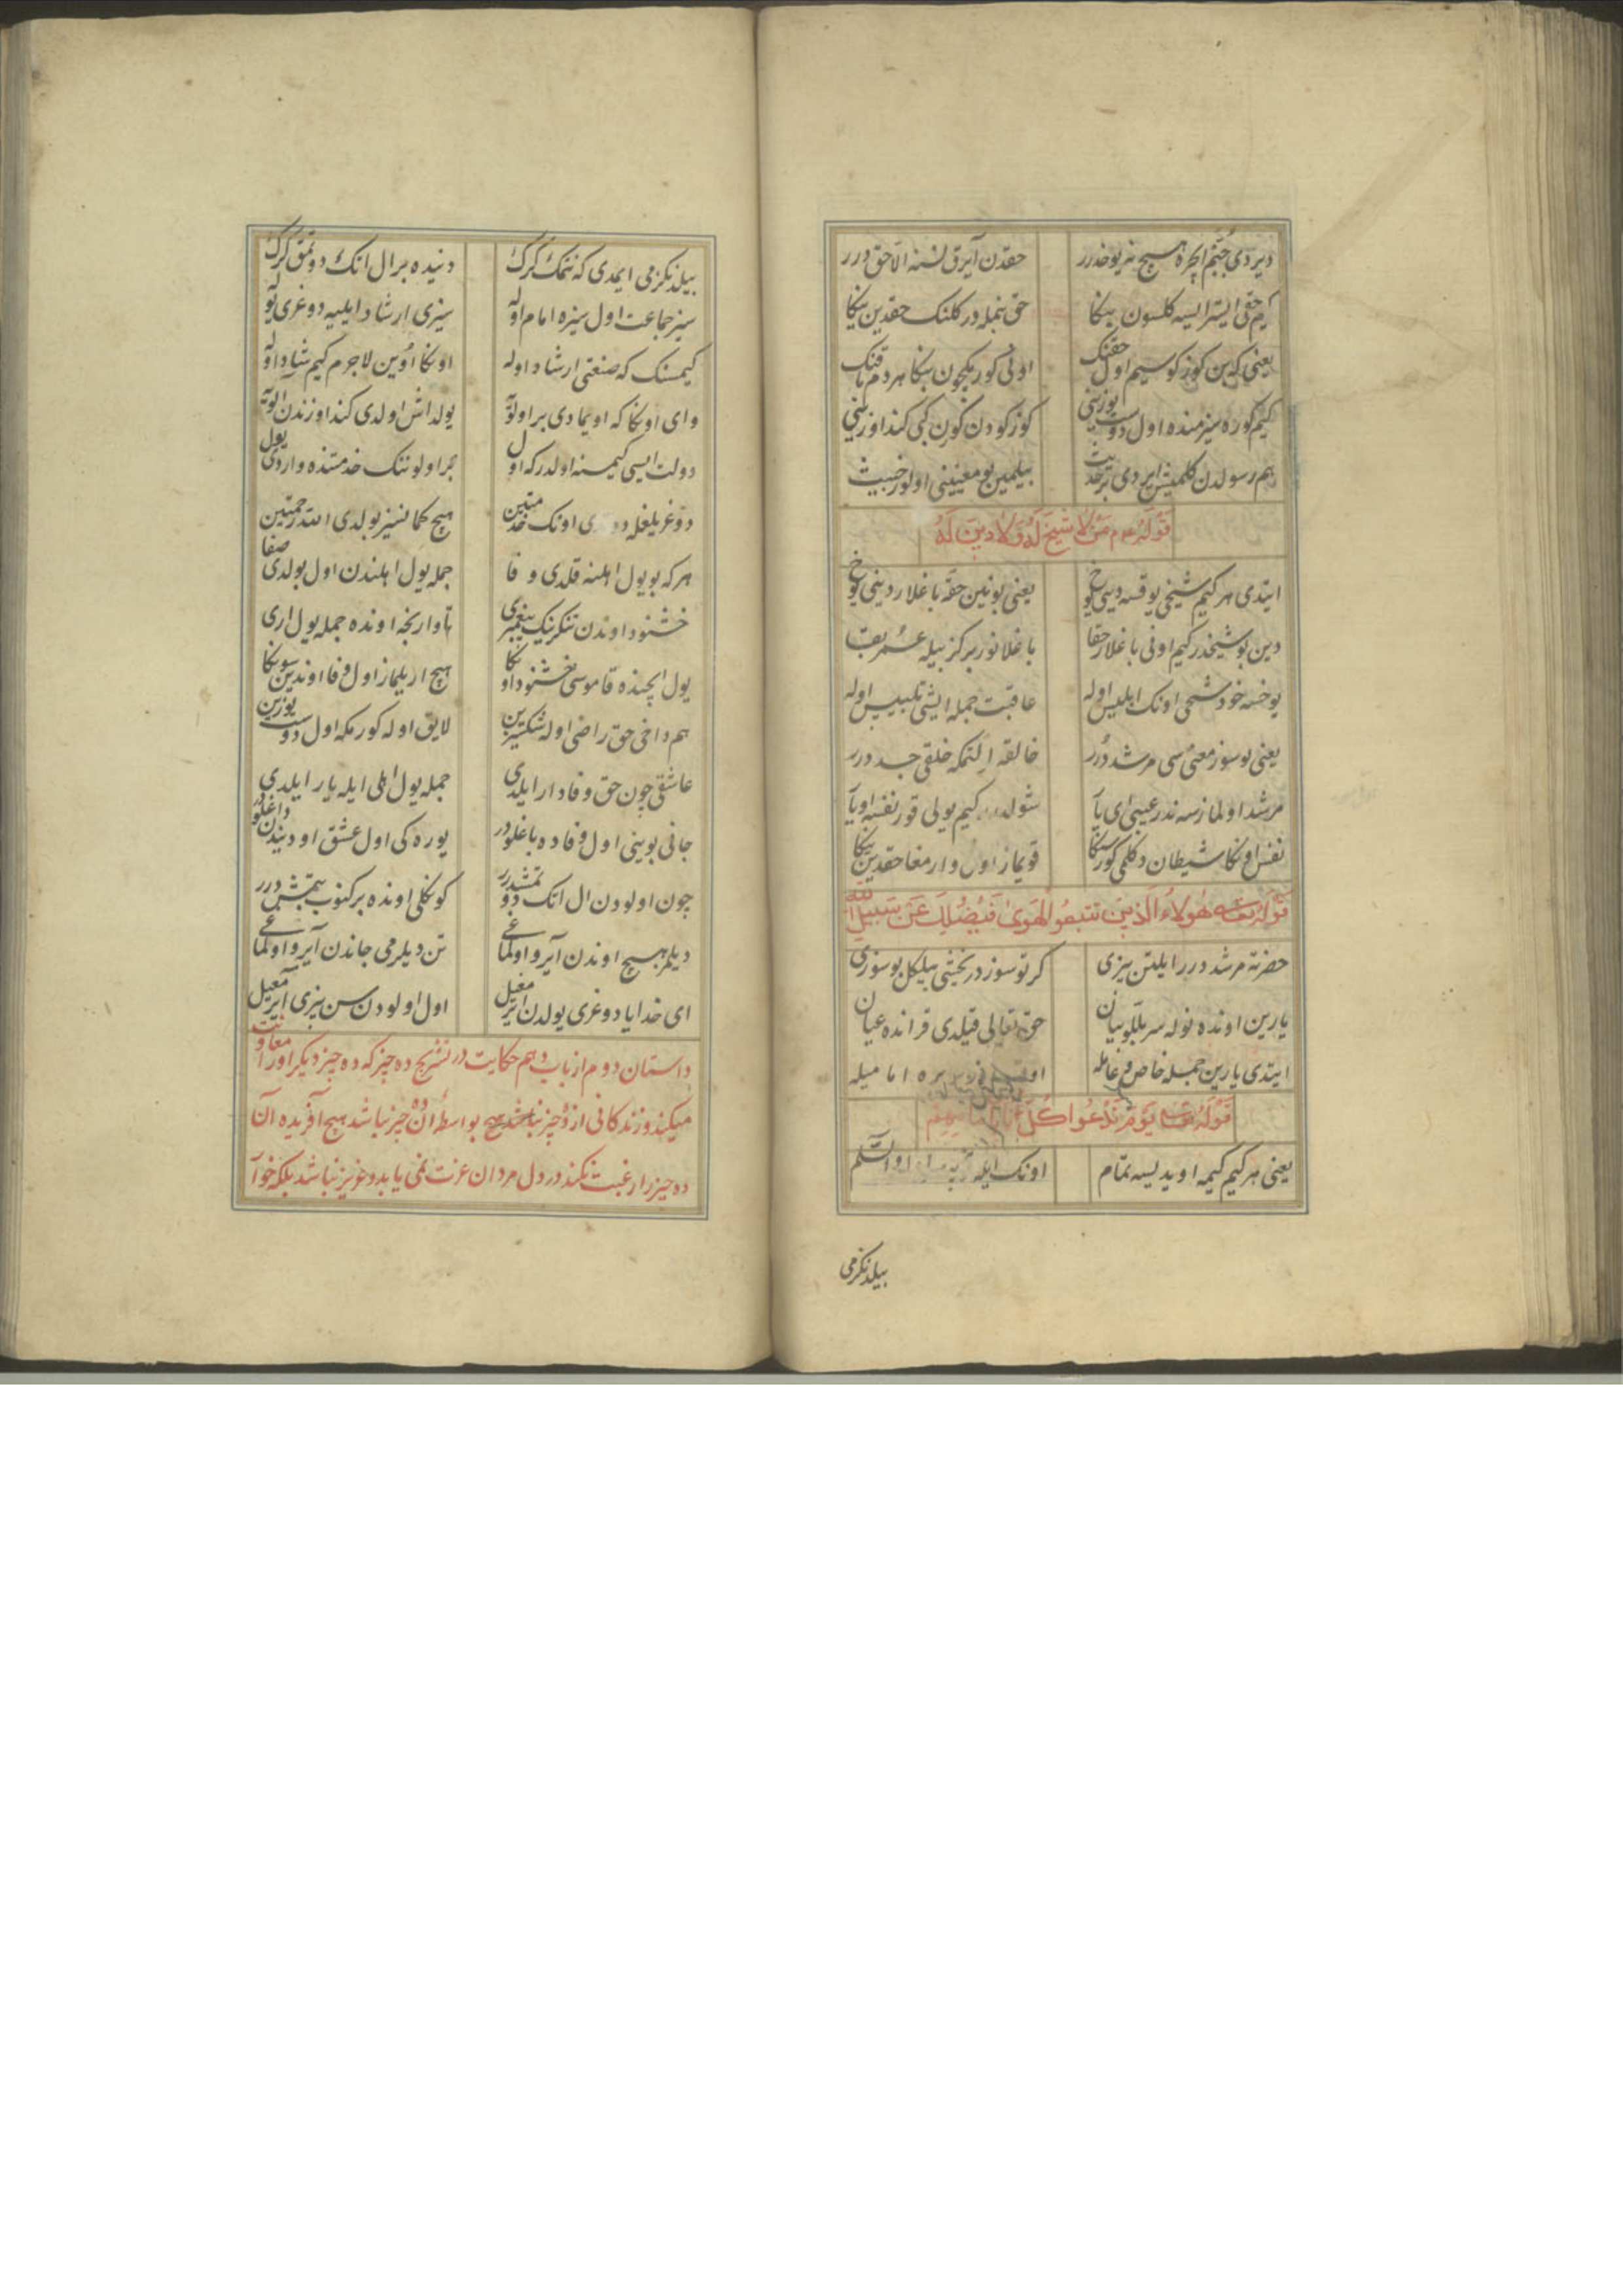 دیردی جبّم ایچره هیچ نه یوخدرر حقدن آیرق نسنه الّا حق درر
کیم حقی ایسترایسه کلسون بنکا حق بنمله در کلنک حقدین ینکا
یعنی که بن کوزکوسیم اول حقنک اونی کورمکچون بنکا هردم باقنک
کیم کوره سیز منده اول دوست یوزینی کوزکودن کورن کبی کنداوزینی
هم رسولدن کلمیش ایردی بر حدیث بیلمین بو معنینی اولور خبیث
قوله ع م من لا شیخ له و لا دین له
ایتدی هرکیم شیخی یوقسه دینی یوخ یعنی بونین حقه باغلار دینی یوخ
دین بو شیخدر کیم اونی باغلار حقا باغلانور برکز بیله
یوخسه خود شیخی اونک ابلیس اوله عاقبت جمله ایشی تلبیس اوله
یعنی بو سوز معنی سی مرشد درر خالقه ایلتمکه خلقی جد درر
مرشد اولمازسه ندر عیبی ای یار شولدر کیم یولی قور نفسه اویار
نفس اونکا شیطان دکلمی کورسنکا قویماز اول وارمغا حقدین ینکا
قوله تعالی هولاء الذین تتبعوا الهوی فیضلک عن سبیل الله
حضرته مرشد درر ایلتن بیزی کرتو سوزدر یخشی بیلکل بو سوزی
یارین اونده نوله سر بللو بیان حق تعالی قیلدی قرانده عیان
ایتدی یارین جمله خاص و عامله بیره امامیله
قوله تعالی یوم ندعوا کل اناس بامامهم
یعنی هرکیم کیمه اویدیسه تمام اونک ایله والسّلم
بیلدنکزمی
بیلدنکزمی ایمدی که نتمک کرک دنیده برال اتک دوتمق کرک
سیز جماعت اول سیزه امام اوله سیزی ارشاد ایلیه دوغری یوله
کیمسنک که صنعتی ارشاد اوله اونکا اوین لاجرم کیم شاد اوله
وای اونکا که اویمادی بر اولویه یولداش اولدی کنداوزندن الویه
دولت ایسی کیمسنه اولدرکه اول بر اولوننک خدمتنده واردی یول
دوغریلغله اونک خدمتین هیچ کمانسیز بولدی الله رحمتین
هرکه بو یول اهلنه قلدی وفا جمله یول اهلندن اول بولدی صفا
خشنود اوندن تنکرینک پیغمبری تا وارنجه اونده جمله یول اری
یول ایچنده قاموسی خشنود اونکا هیچ اریلماز اول وفا اوندین سونکا
هم داخی حق راضی اوله شکسیزین لایق اوله کورمکه اول دوست یوزین
عاشقی چون حق وفادار ایلدی جمله یول اهلی ایله یار ایلدی
جانی بوینی اول وفاده باغلودر یوره کی اول عشق اودیندن داغلودر
چون اولودن ال اتک دوتمشدرر کونکلی اونده برکنوب بتمش درر
دیلر هیچ اوندن آیرو اولماغی تن دیلرمی جاندن آیرو اولماغی
ای خدایا دوغری یولدن ایرمغیل اول اولودن سن بیزی ایرمغیل
داستان دوم از باب دهم حکایت در تشریح ده چیز که ده چیز دیکر اورا معاونت
میکند و زندکانی از دو چیز نباشد هیچ بواسطه آن ده چیز نباشد هیچ آفریده آن
ده چیز را رغبت نکند در دل مردان عزت نمی یابد و عزیز نباشد بلکه خوار